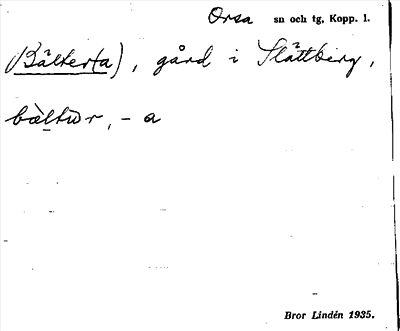 Orsa sn och tg, Kopp. l.
(Bälterta), gård i Slättberg,
bä̀ltūr, – a
Bror Lindén 1935.